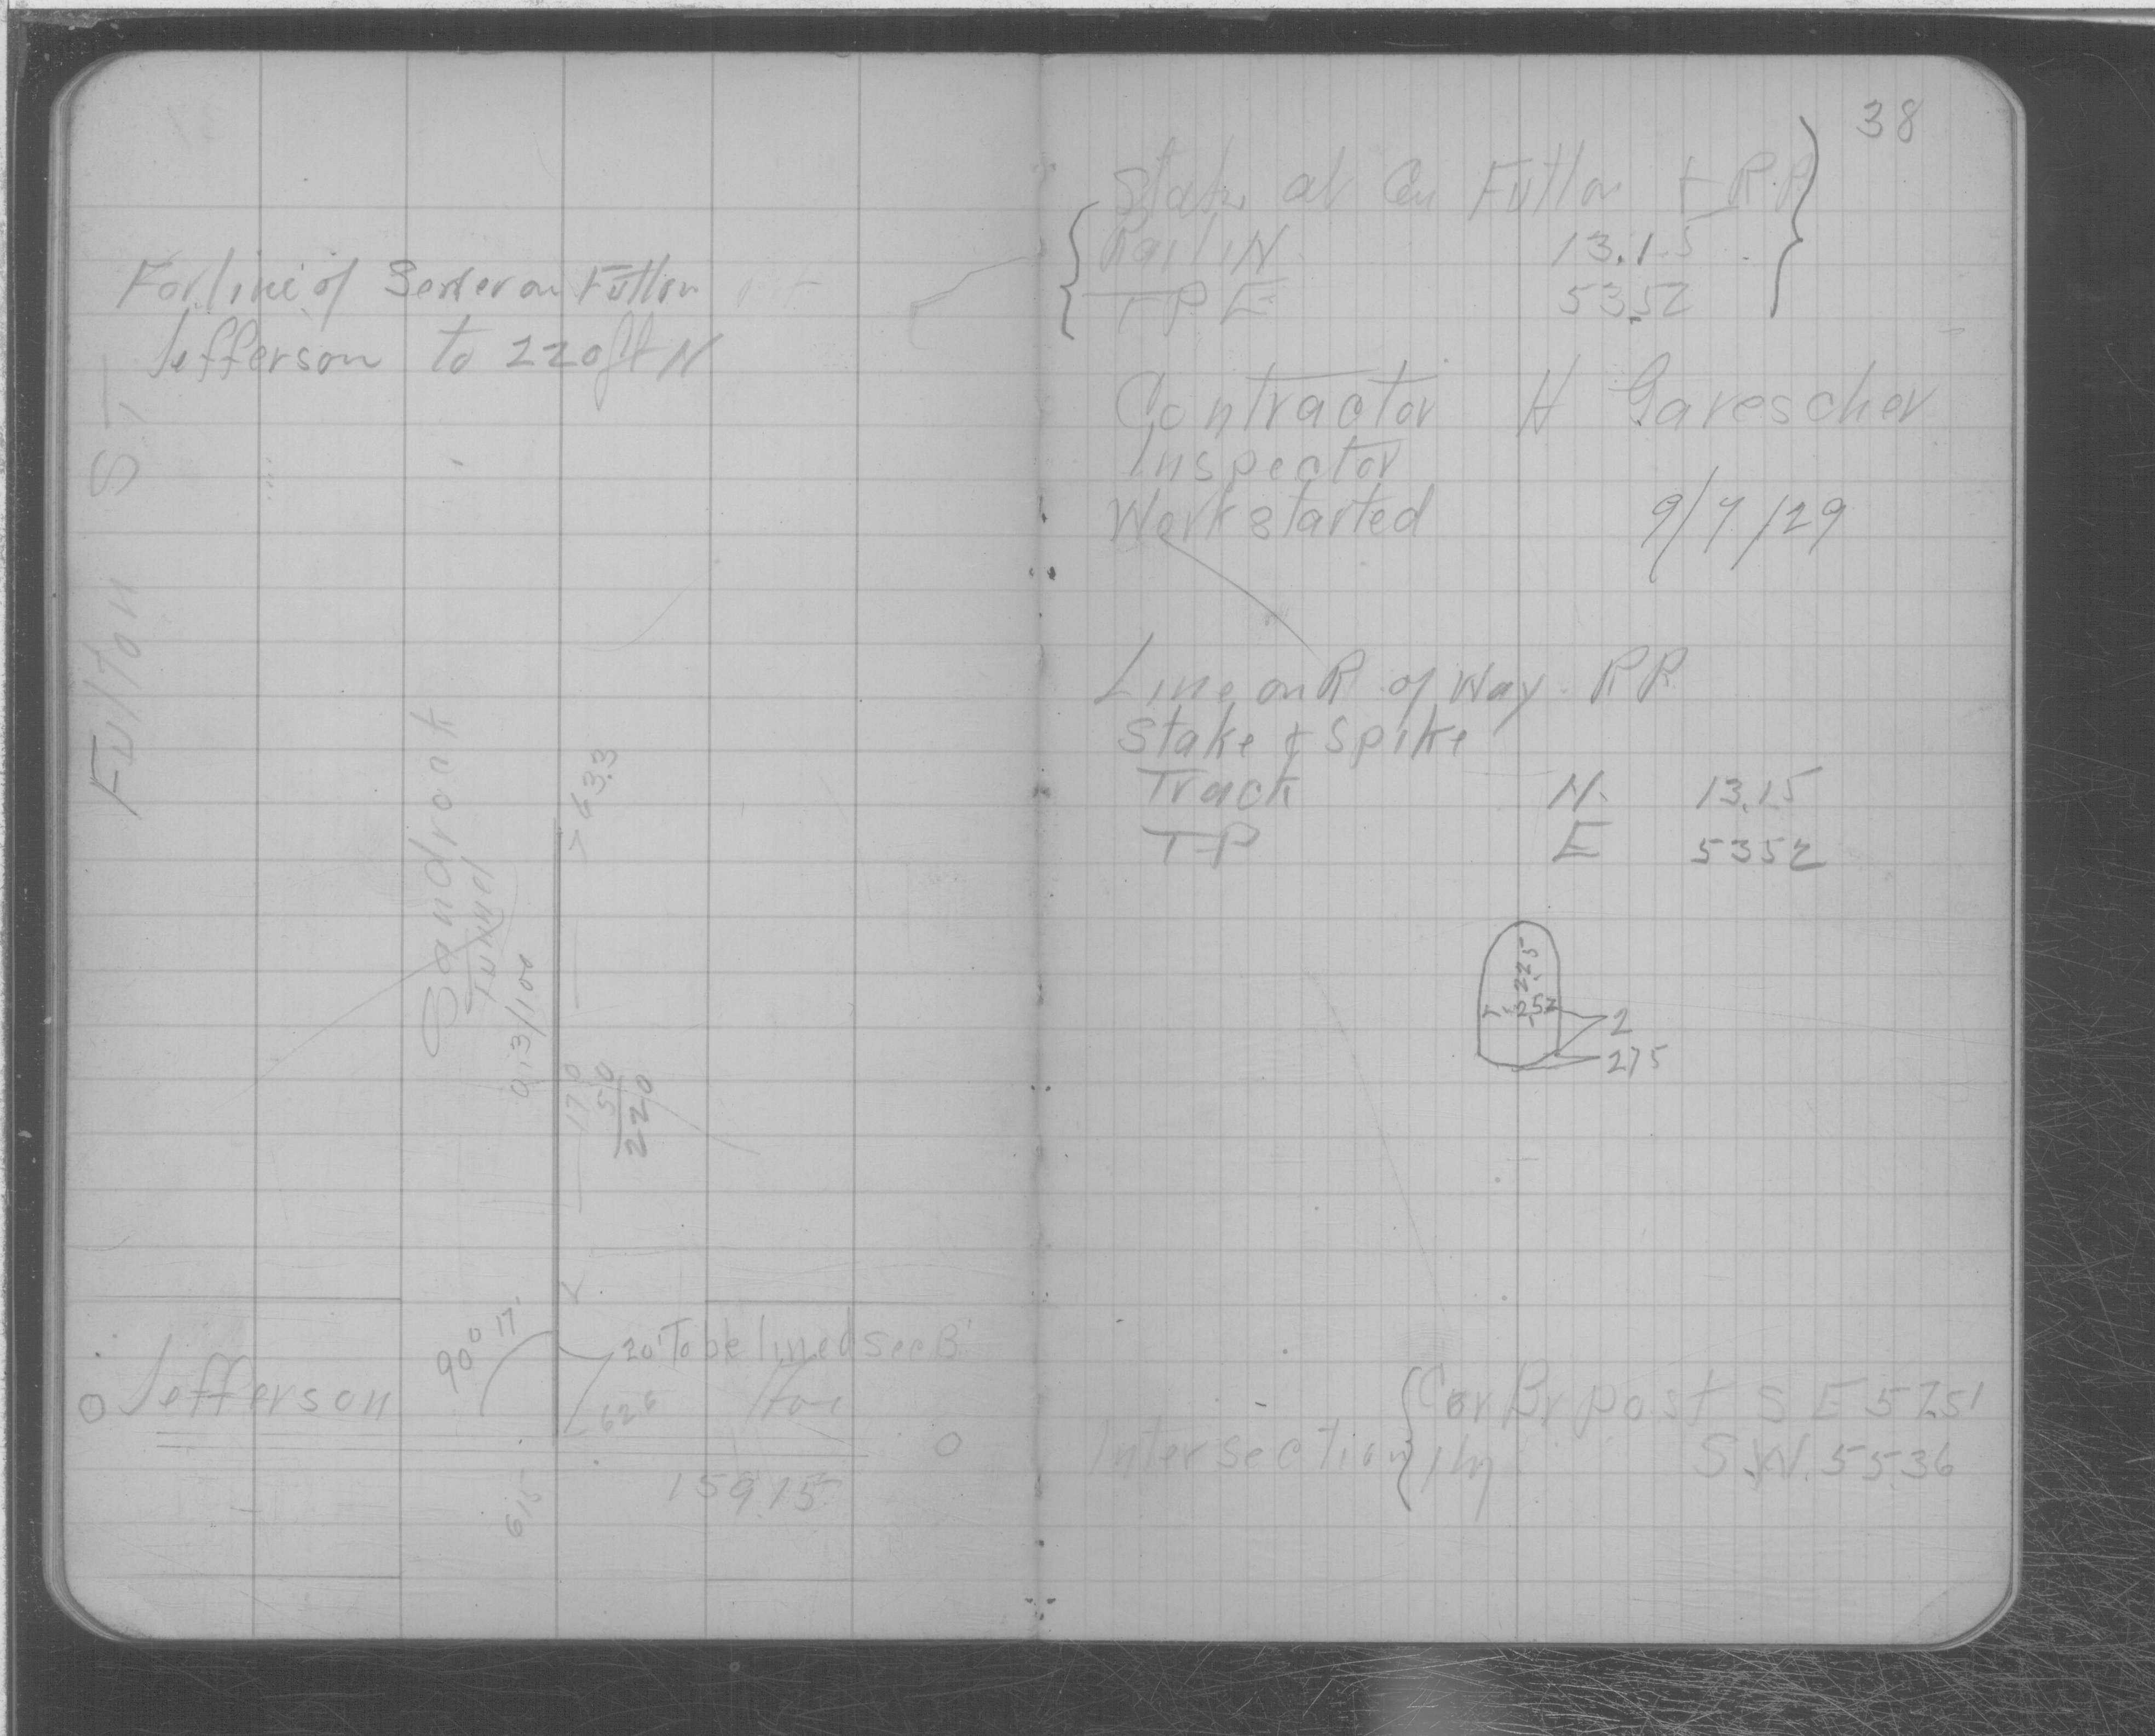 For line of Sewer on Fulton
Jefferson to 220 ft N
Fulton ST
Sandrock
Tunnel
0.3/100
633
170
50
220
90° 17'
20' To be lined Sec B
Jefferson
626
615
15975
38
at Cor Fulton + R.R
Rail N 13.15
T P E 53.52
Contractor H Garescher
Inspector
Work started 9/7/29
Line on R of Way RR
Stake & Spike
Track N. 13.15
TP E 5352
2.25
252
2
275
Intersection
Cor Br post S E 5251
S.W. 5536